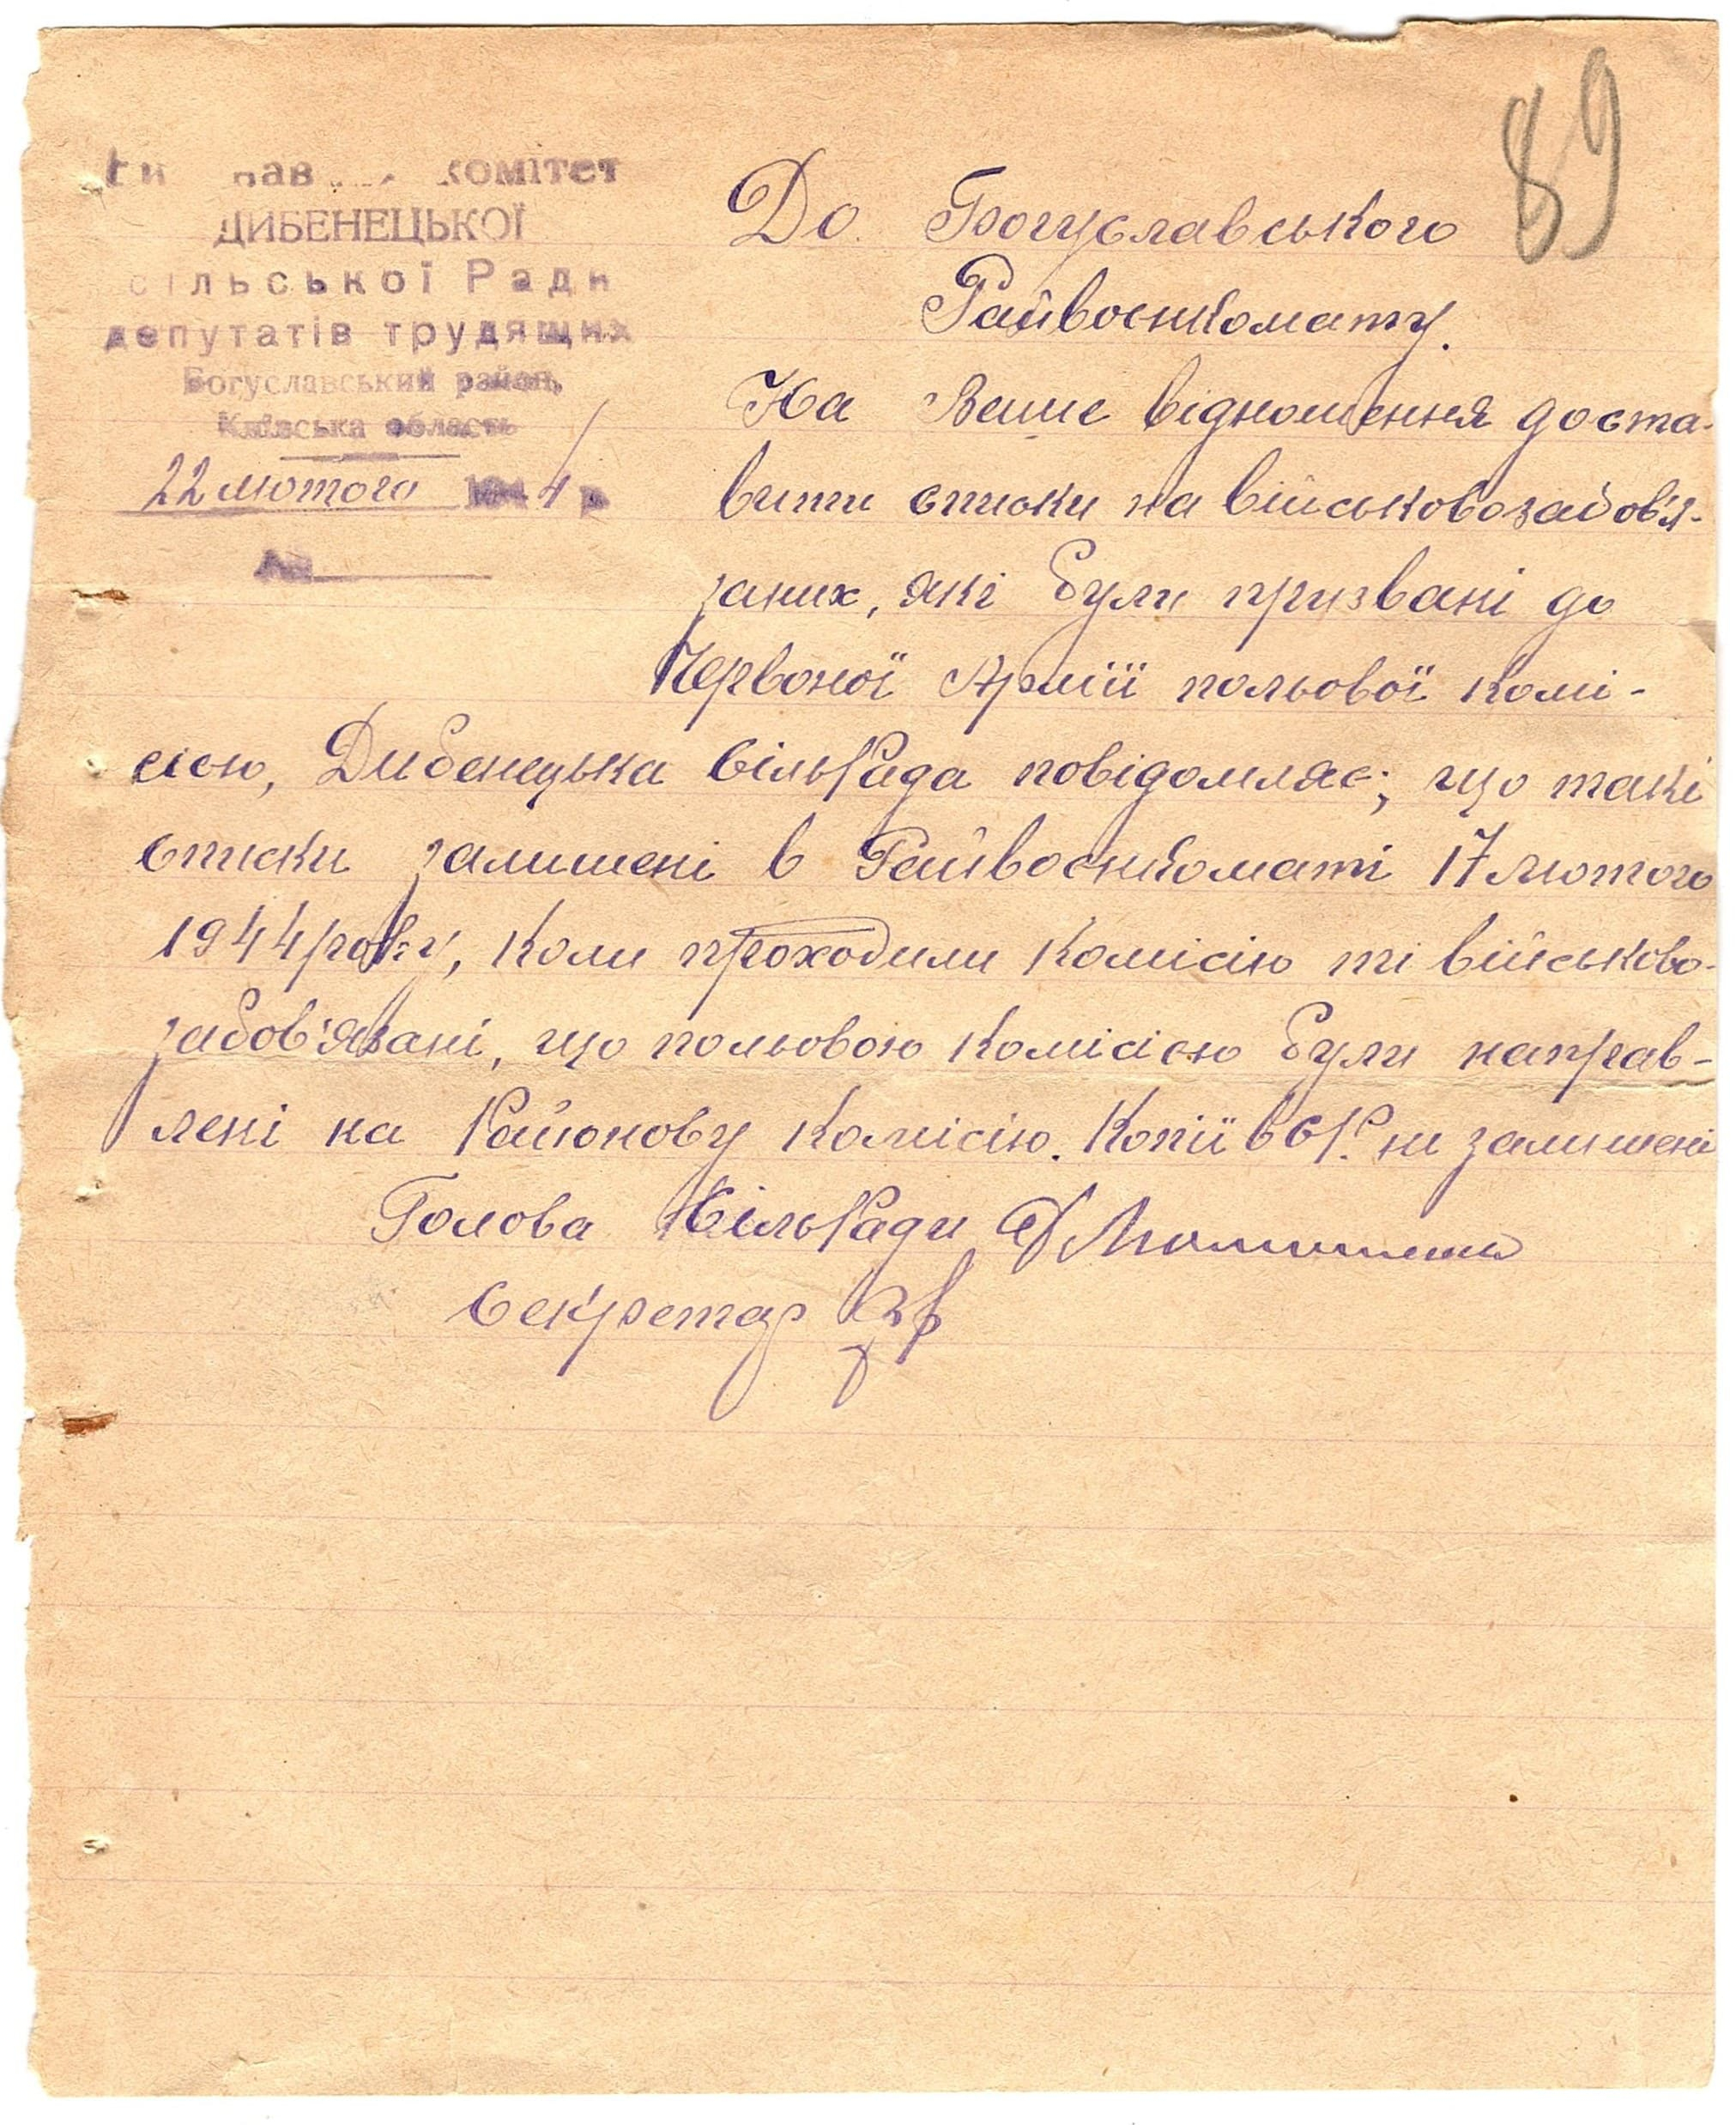 89
комітет
ДИБЕНЕЦЬКОЇ
сільської Ради
депутатів трудящих
Богуславський район,
Київська область
22 лютого 1944 р
№
До Богуславського
Райвоєнкомату.
На Ваше відношення доста-
вити списки на військовозабов'я-
заних, які були призвані до
Червоної Армії польової комі-
сією, Дибенецька сільРада повідомляє, що такі
списки залишені в Райвоєнкоматі 17 лютого
1944 року, коли проходили комісію ті військово-
забов'язані, що польовою комісією були направ-
лені на Районову комісію. Копії в с/Р. не залишені
Голова СільРади
Секретар